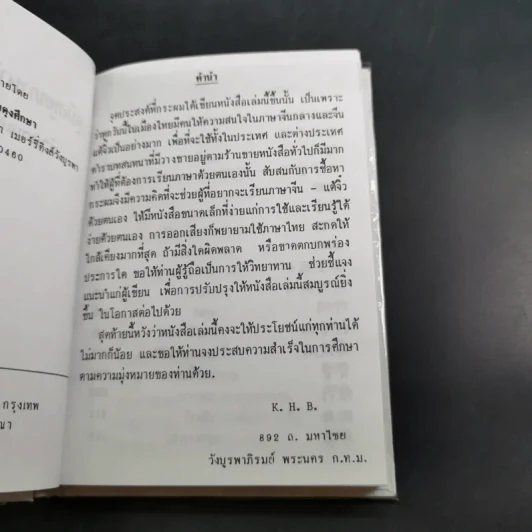 ายโดย
ดุงศึกษา
เมอร์รี่คิงส์วังบูรพา
0460
กรุงเทพ
ณา
คำนำ
จุดประสงค์ที่กระผมได้เขียนหนังสือเล่มนี้ขึ้นนั้น เป็นเพราะ
ว่าทุกวันนี้ในเมืองไทยมีคนให้ความสนใจในภาษาจีนกลางและจีน
แต้จิ๋วเป็นอย่างมาก เพื่อที่จะใช้ทั้งในประเทศ และต่างประเทศ
ตำราบทสนทนาที่มีวางขายอยู่ตามร้านขายหนังสือทั่วไปก็มีมาก
ทำให้ผู้ที่ต้องการเรียนภาษาด้วยตนเองนั้น สับสนกับการซื้อหา
กระผมจึงมีความคิดที่จะช่วยผู้ที่อยากจะเรียนภาษาจีน – แต้จิ๋ว
ด้วยตนเอง ให้มีหนังสือขนาดเล็กที่ง่ายแก่การใช้และเรียนรู้ได้
ง่ายด้วยตนเอง การออกเสียงก็พยายามใช้ภาษาไทย สะกดให้
ใกล้เคียงมากที่สุด ถ้ามีสิ่งใดผิดพลาด หรือขาดตกบกพร่อง
ประการใด ขอให้ท่านผู้รู้ถือเป็นการให้วิทยาทาน ช่วยชี้แจง
แนะนำแก่ผู้เขียน เพื่อการปรับปรุงให้หนังสือเล่มนี้สมบูรณ์ยิ่ง
ขึ้น ในโอกาสต่อไปด้วย
สุดท้ายนี้หวังว่าหนังสือเล่มนี้คงจะให้ประโยชน์แก่ทุกท่านได้
ไม่มากก็น้อย และขอให้ท่านจงประสบความสำเร็จในการศึกษา
ตามความมุ่งหมายของท่านด้วย.
K. H. B.
892 ถ. มหาไชย
วังบูรพาภิรมย์ พระนคร ก.ท.ม.